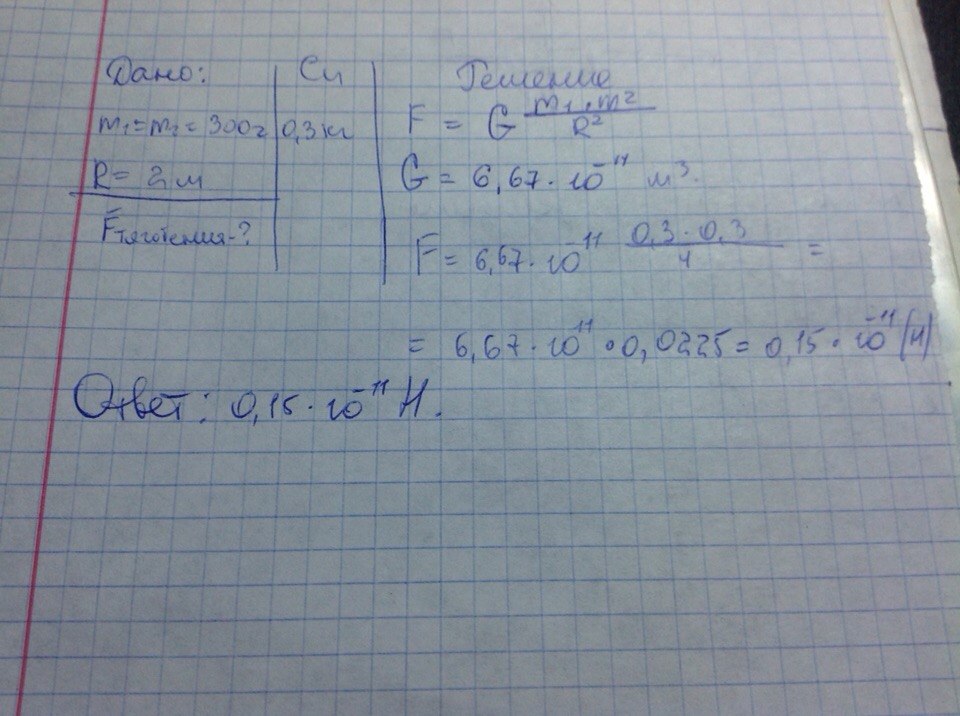 Дано:
m₁=m₂=300г
R= 2м
Fтяготения-?
Си
0,3кг
Решение
F = G m₁·m² / R²
G = 6,67·10⁻¹¹ м³.
F = 6,67·10⁻¹¹ 0,3·0,3 / 4 =
= 6,67·10⁻¹¹·0,0225=0,15·10⁻¹¹(Н)
Ответ: 0,15·10⁻¹¹Н.